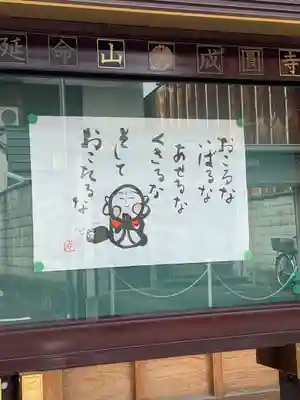 延命山成圓寺
おこるな
いばるな
あせるな
くさるな
そして
おこたるな